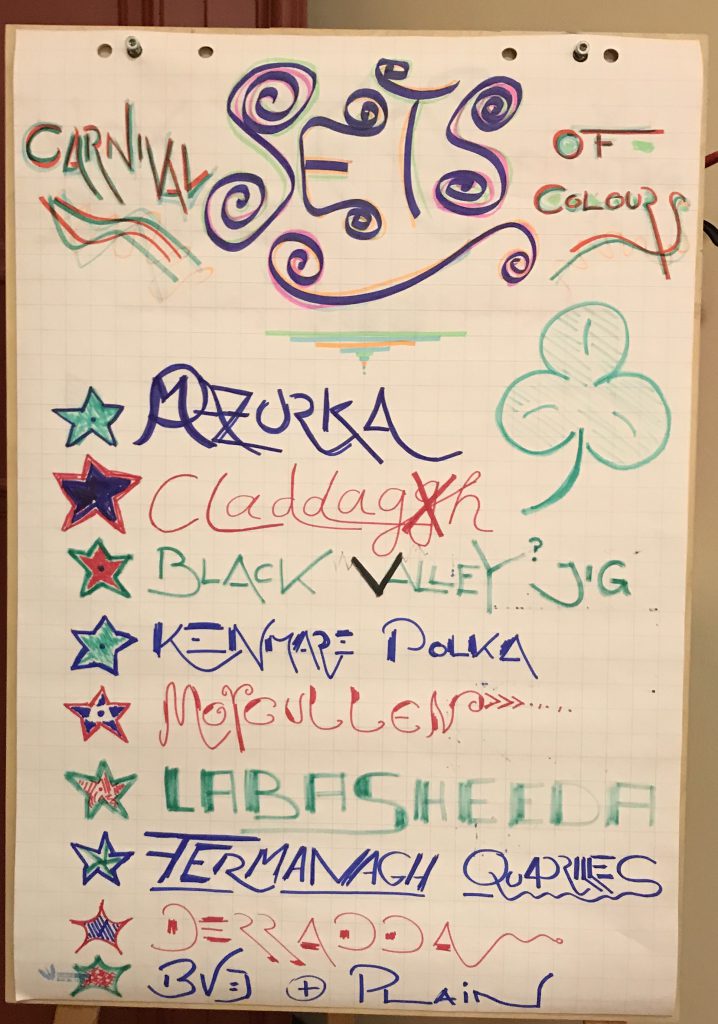 CARNIVAL SETS OF COLOURS
MAZURKA
Claddaggh
BLACK VALLEY ? JIG
KENMARE POLKA
MOYCULLEN >>>>.....
LABASHEEDA
FERMANAGH QUADRILLES
DERRADDA
BVJ + PLAIN